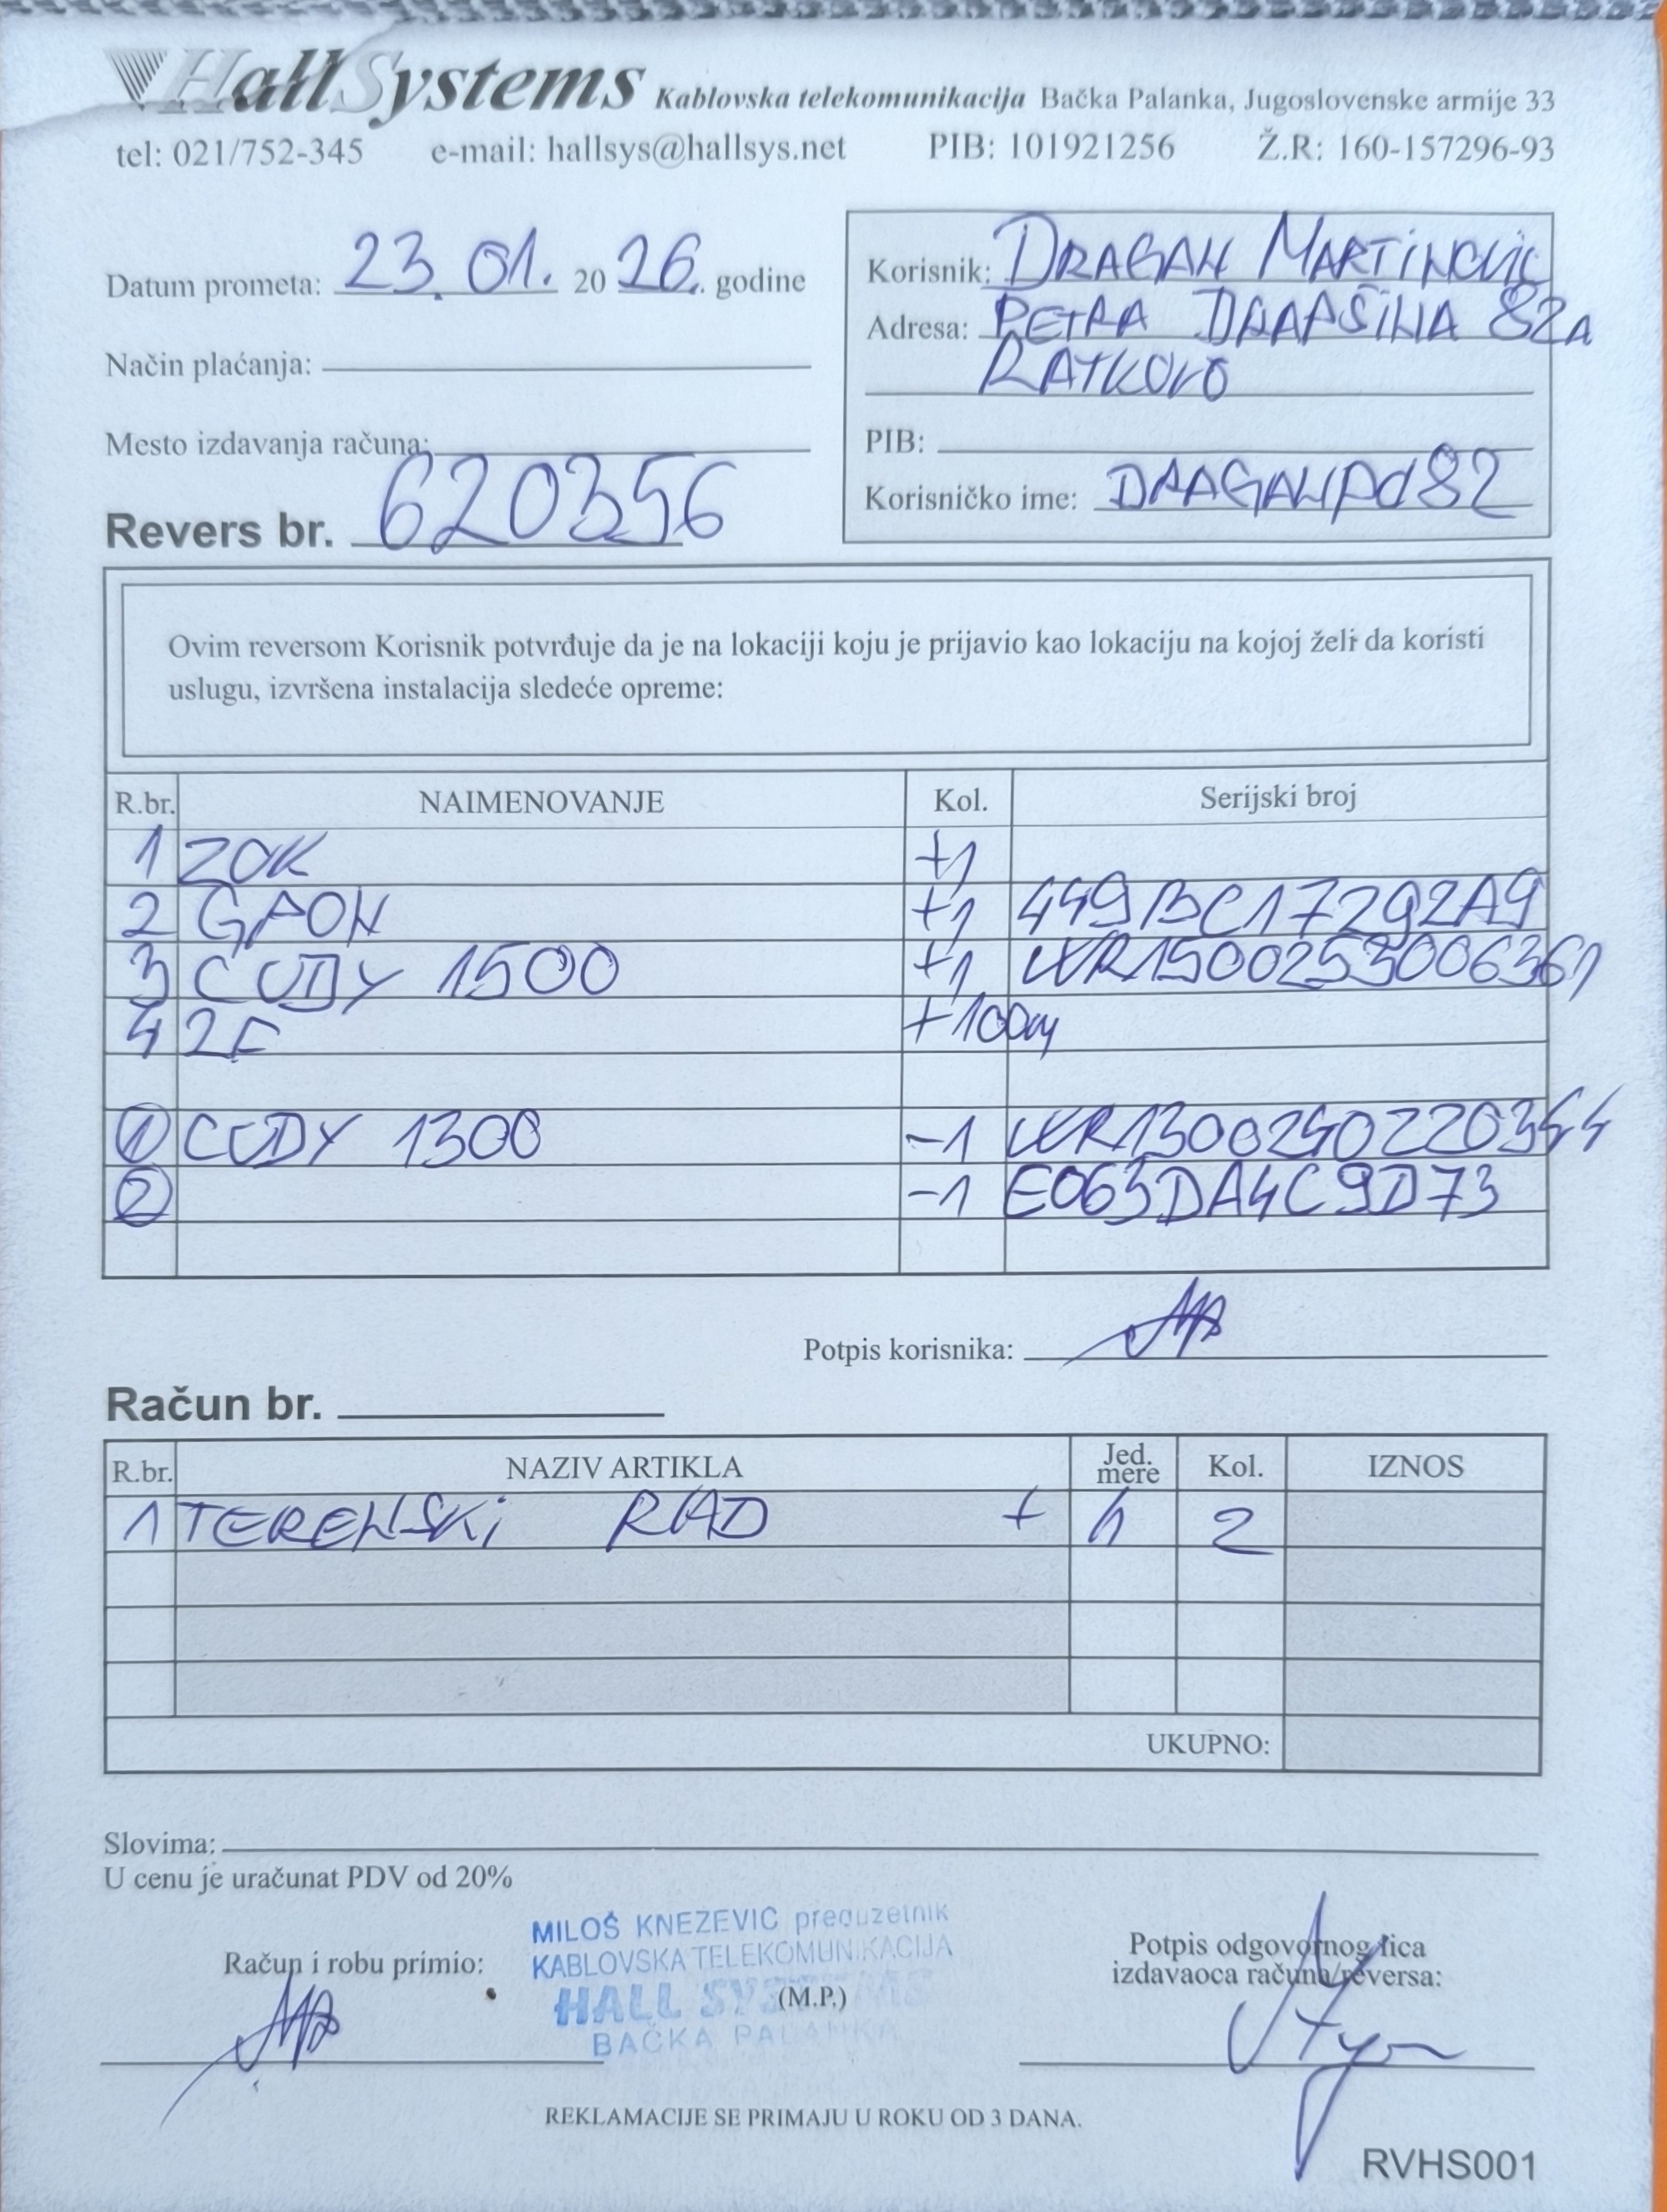 HallSystems Kablovska telekomunikacija Bačka Palanka, Jugoslovenske armije 33
tel: 021/752-345 e-mail: hallsys@hallsys.net PIB: 101921256 Ž.R: 160-157296-93
Datum prometa: 23. 01. 2026. godine
Način plaćanja:
Mesto izdavanja računa:
Revers br. 620356
Korisnik: DRAGAN MARTiNOVIC
Adresa: PETRA DRAPŠiNA 82A
RATKOVO
PIB:
Korisničko ime: DRAGANPd82
Ovim reversom Korisnik potvrđuje da je na lokaciji koju je prijavio kao lokaciju na kojoj želi da koristi
uslugu, izvršena instalacija sledeće opreme:
R.br. NAIMENOVANJE Kol. Serijski broj
1 ZOK +1
2 GPON +1 449BC17292A9
3 CUDY 1500 +1 WR1500253006361
4 2F +100m
1 CUDY 1300 -1 WR1300240220344
2 -1 E063DA4C9D73
Potpis korisnika:
Račun br.
R.br. NAZIV ARTIKLA Jed. mere Kol. IZNOS
1 TERENSKi RAD + h 2
UKUPNO:
Slovima:
U cenu je uračunat PDV od 20%
Račun i robu primio:
MILOŠ KNEZEVIC preduzetnik
KABLOVSKA TELEKOMUNIKACIJA
HALL SYSTEMS
(M.P.)
BAČKA PALANKA
Potpis odgovornog lica
izdavaoca računa/reversa:
REKLAMACIJE SE PRIMAJU U ROKU OD 3 DANA.
RVHS001